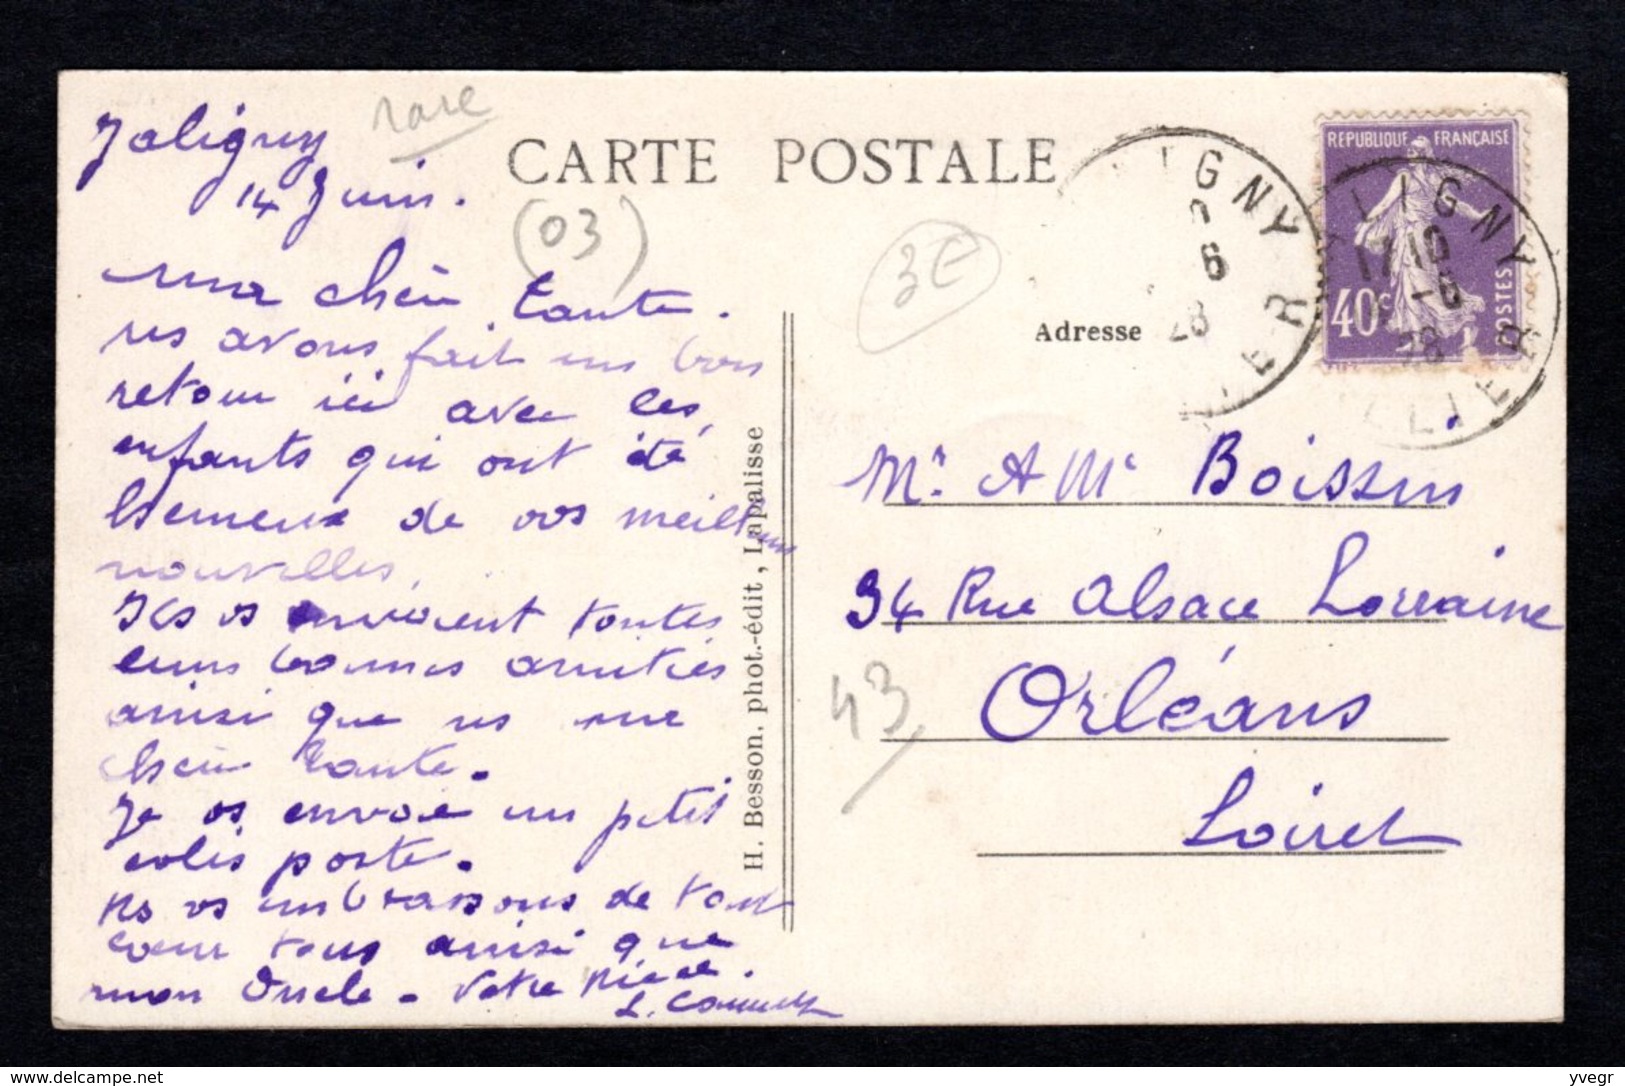 Jaligny
14 Juin.
rare
CARTE POSTALE
(03)
3€
Adresse
REPUBLIQUE FRANÇAISE
40c
POSTES
LIGNY
17 10
-6
28
LIER
IGNY
6
28
IER
ma chère tante.
ns avons fait un bon
retour ici avec les
enfants qui ont été
heureux de vos meilleures
nouvelles.
Ils vs envoient toutes
leurs bonnes amitiés
ainsi que ns ma
chère tante.
Je vs envoie un petit
colis poste.
Ns vs embrassons de tout
coeur tous ainsi que
mon Oncle. Votre Nièce.
L.
H. Besson, phot.-édit, Lapalisse
Mr. & Me Boisson
34 Rue Alsace Lorraine
Orléans
Loiret
43
http://www.delcampe.net
yvegr